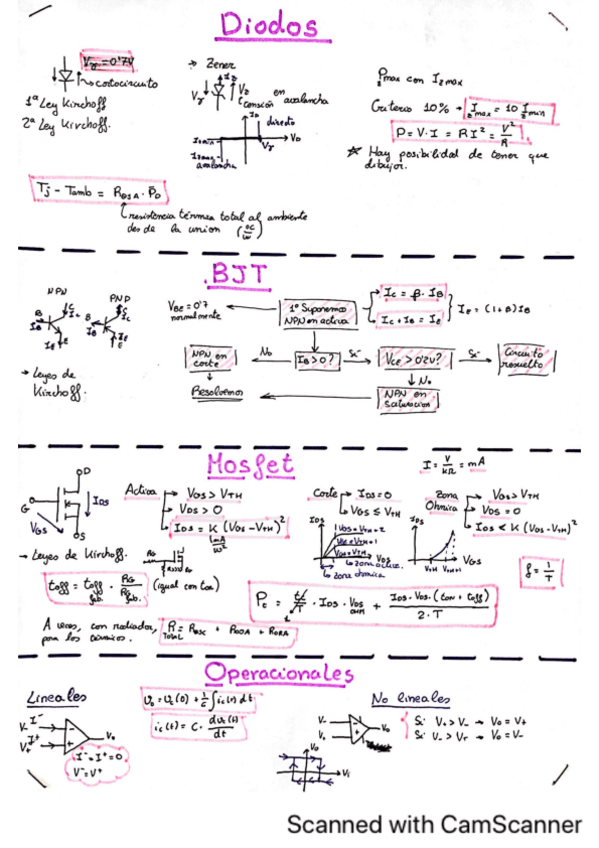 Diodos
Vγ=0'7V
cortocircuito
1ª Ley Kirchoff
2ª Ley Kirchoff.
→ Zener
Vγ
VZ
tensión en avalancha
ID
directo
VD
Vγ
avalancha
Pmax con IZmax
Criterio 10% → IZmax = 10 IZmin
P = V·I = RI² = V²/R
Hay posibilidad de tener que
dibujar.
Tj - Tamb = RθJA · PD
resistencia térmica total al ambiente
desde la union (ºC/W)
BJT
NPN
PNP
B
IB
C
IC
IE
E
→ Leyes de
Kirchoff.
VBE = 0'7
normalmente
1º Suponemos
NPN en activa
IC = β · IB
IC + IB = IE
IE = (1+β)IB
NPN en
corte
No
IB>0?
Si
VCE > 0'2V?
Si
Circuito
resuelto
↓ No
Resolvemos
NPN en
saturacion
Mosfet
I = V/kΩ = mA
D
G
S
IDS
VGS
Activa
VGS > VTH
VDS > 0
IDS = K (VGS - VTH)²
Corte
IDS = 0
VGS ≤ VTH
Zona
Ohmica
VGS > VTH
VDS = 0
IDS < K (VGS - VTH)²
IDS
VDS
zona activa
zona ohmica
IDS
VGS
VTH
→ Leyes de Kirchoff.
RG
toff = toff fab. · RG/RG fab. (igual con ton)
f = 1/T
A veces, con radiador,
para los térmicos.
RTOTAL = RθJC + RθDA + RθRA
Operacionales
Lineales
V-
I-
I+
V+
Vo
I- = I+ = 0
V- = V+
ic(t) = C · dvc(t)/dt
No lineales
V-
V+
Vo
Si V+ > V- → Vo = V+
Vo
Vi
Scanned with CamScanner